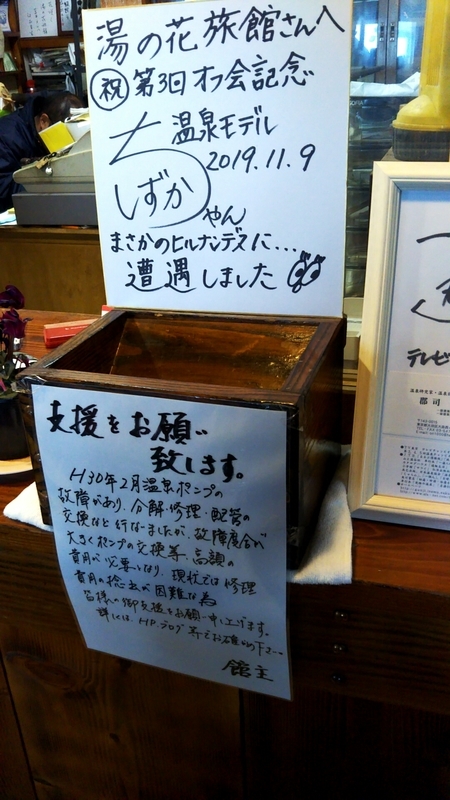 湯の花旅館さんへ
祝 第3回オフ会記念
温泉モデル
2019.11.9
しずかちゃん
まさかのヒルナンデスに…
遭遇しました
支援をお願い
致します。
H30年2月温泉ポンプの
故障があり、分解・修理・配管の
交換など行ないましたが、故障度合が
大きくポンプの交換等、高額の
費用が必要となり、現状では修理
費用の捻出が困難な為
皆様の御支援をお願い申し上げます。
詳しくは、HP・ブログ等でお確め下さい。
館主
テレビ
郡司